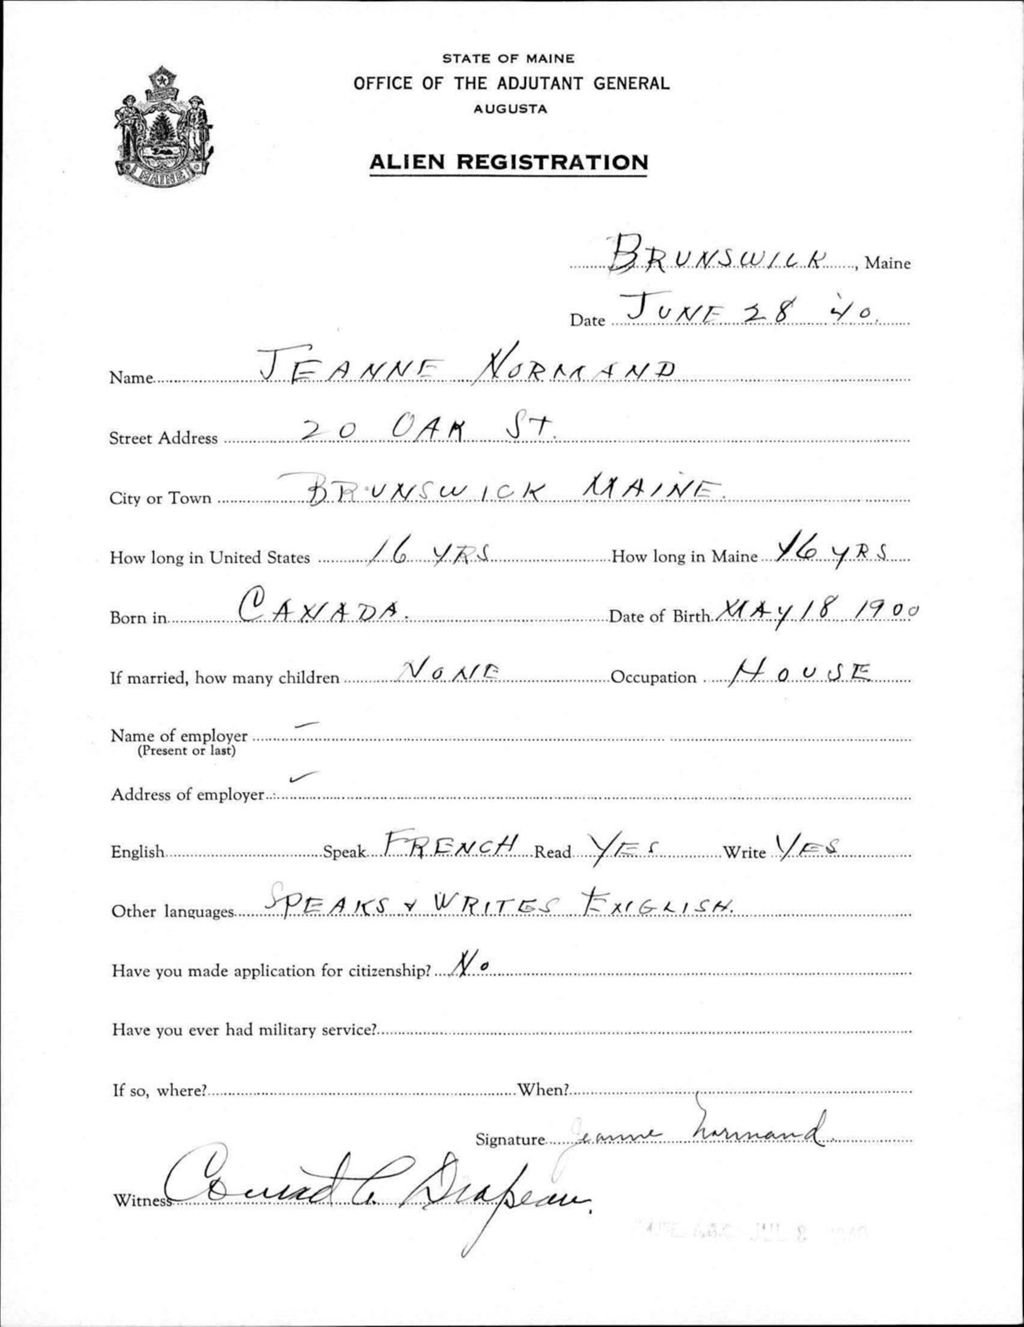 STATE OF MAINE
OFFICE OF THE ADJUTANT GENERAL
AUGUSTA
MAINE
ALIEN REGISTRATION
BRUNSWICK, Maine
Date JUNE 28 '40.
Name JEANNE NORMAND
Street Address 20 OAK ST.
City or Town BRUNSWICK MAINE.
How long in United States 16 YRS How long in Maine 16 YRS
Born in CANADA. Date of Birth MAY 18 1900
If married, how many children NONE Occupation HOUSE
Name of employer —
(Present or last)
Address of employer
English Speak FRENCH Read YES Write YES
Other languages SPEAKS & WRITES ENGLISH.
Have you made application for citizenship? No
Have you ever had military service?
If so, where? When?
Signature Jeanne Normand
Witness Conrad C. Drapeau.
JUL 3 1940